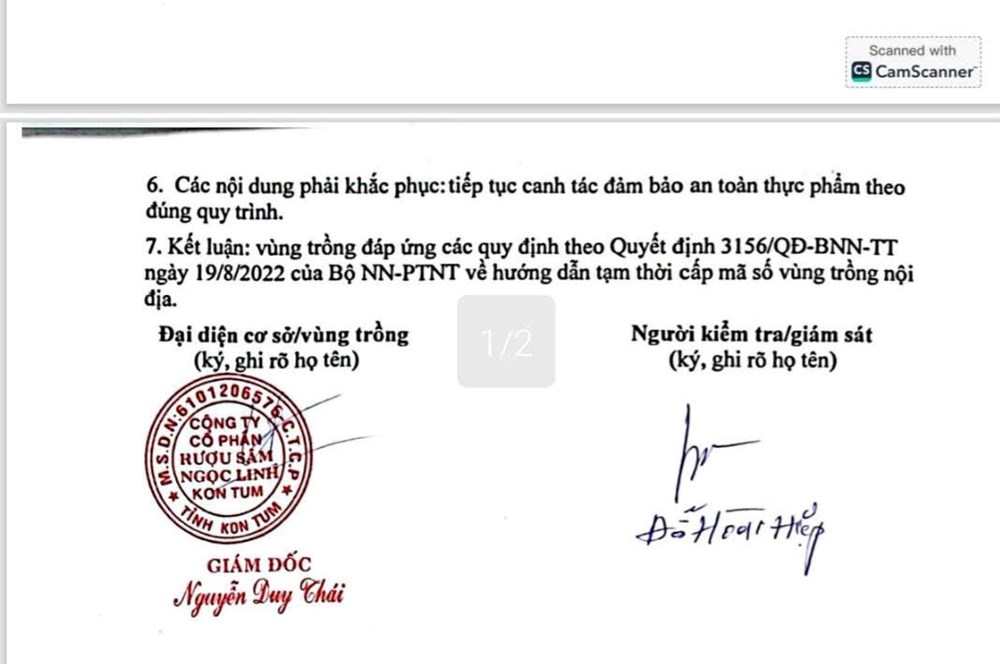 Scanned with
CS CamScanner
6. Các nội dung phải khắc phục: tiếp tục canh tác đảm bảo an toàn thực phẩm theo
đúng quy trình.
7. Kết luận: vùng trồng đáp ứng các quy định theo Quyết định 3156/QĐ-BNN-TT
ngày 19/8/2022 của Bộ NN-PTNT về hướng dẫn tạm thời cấp mã số vùng trồng nội
địa.
Đại diện cơ sở/vùng trồng
(ký, ghi rõ họ tên)
1/2
Người kiểm tra/giám sát
(ký, ghi rõ họ tên)
M.S.D.N:6101206575-C.T.C.P
CÔNG TY
CỔ PHẦN
RƯỢU SÂM
NGỌC LINH
KON TUM
TỈNH KON TUM
GIÁM ĐỐC
Nguyễn Duy Thái
Đỗ Hoài Hiệp